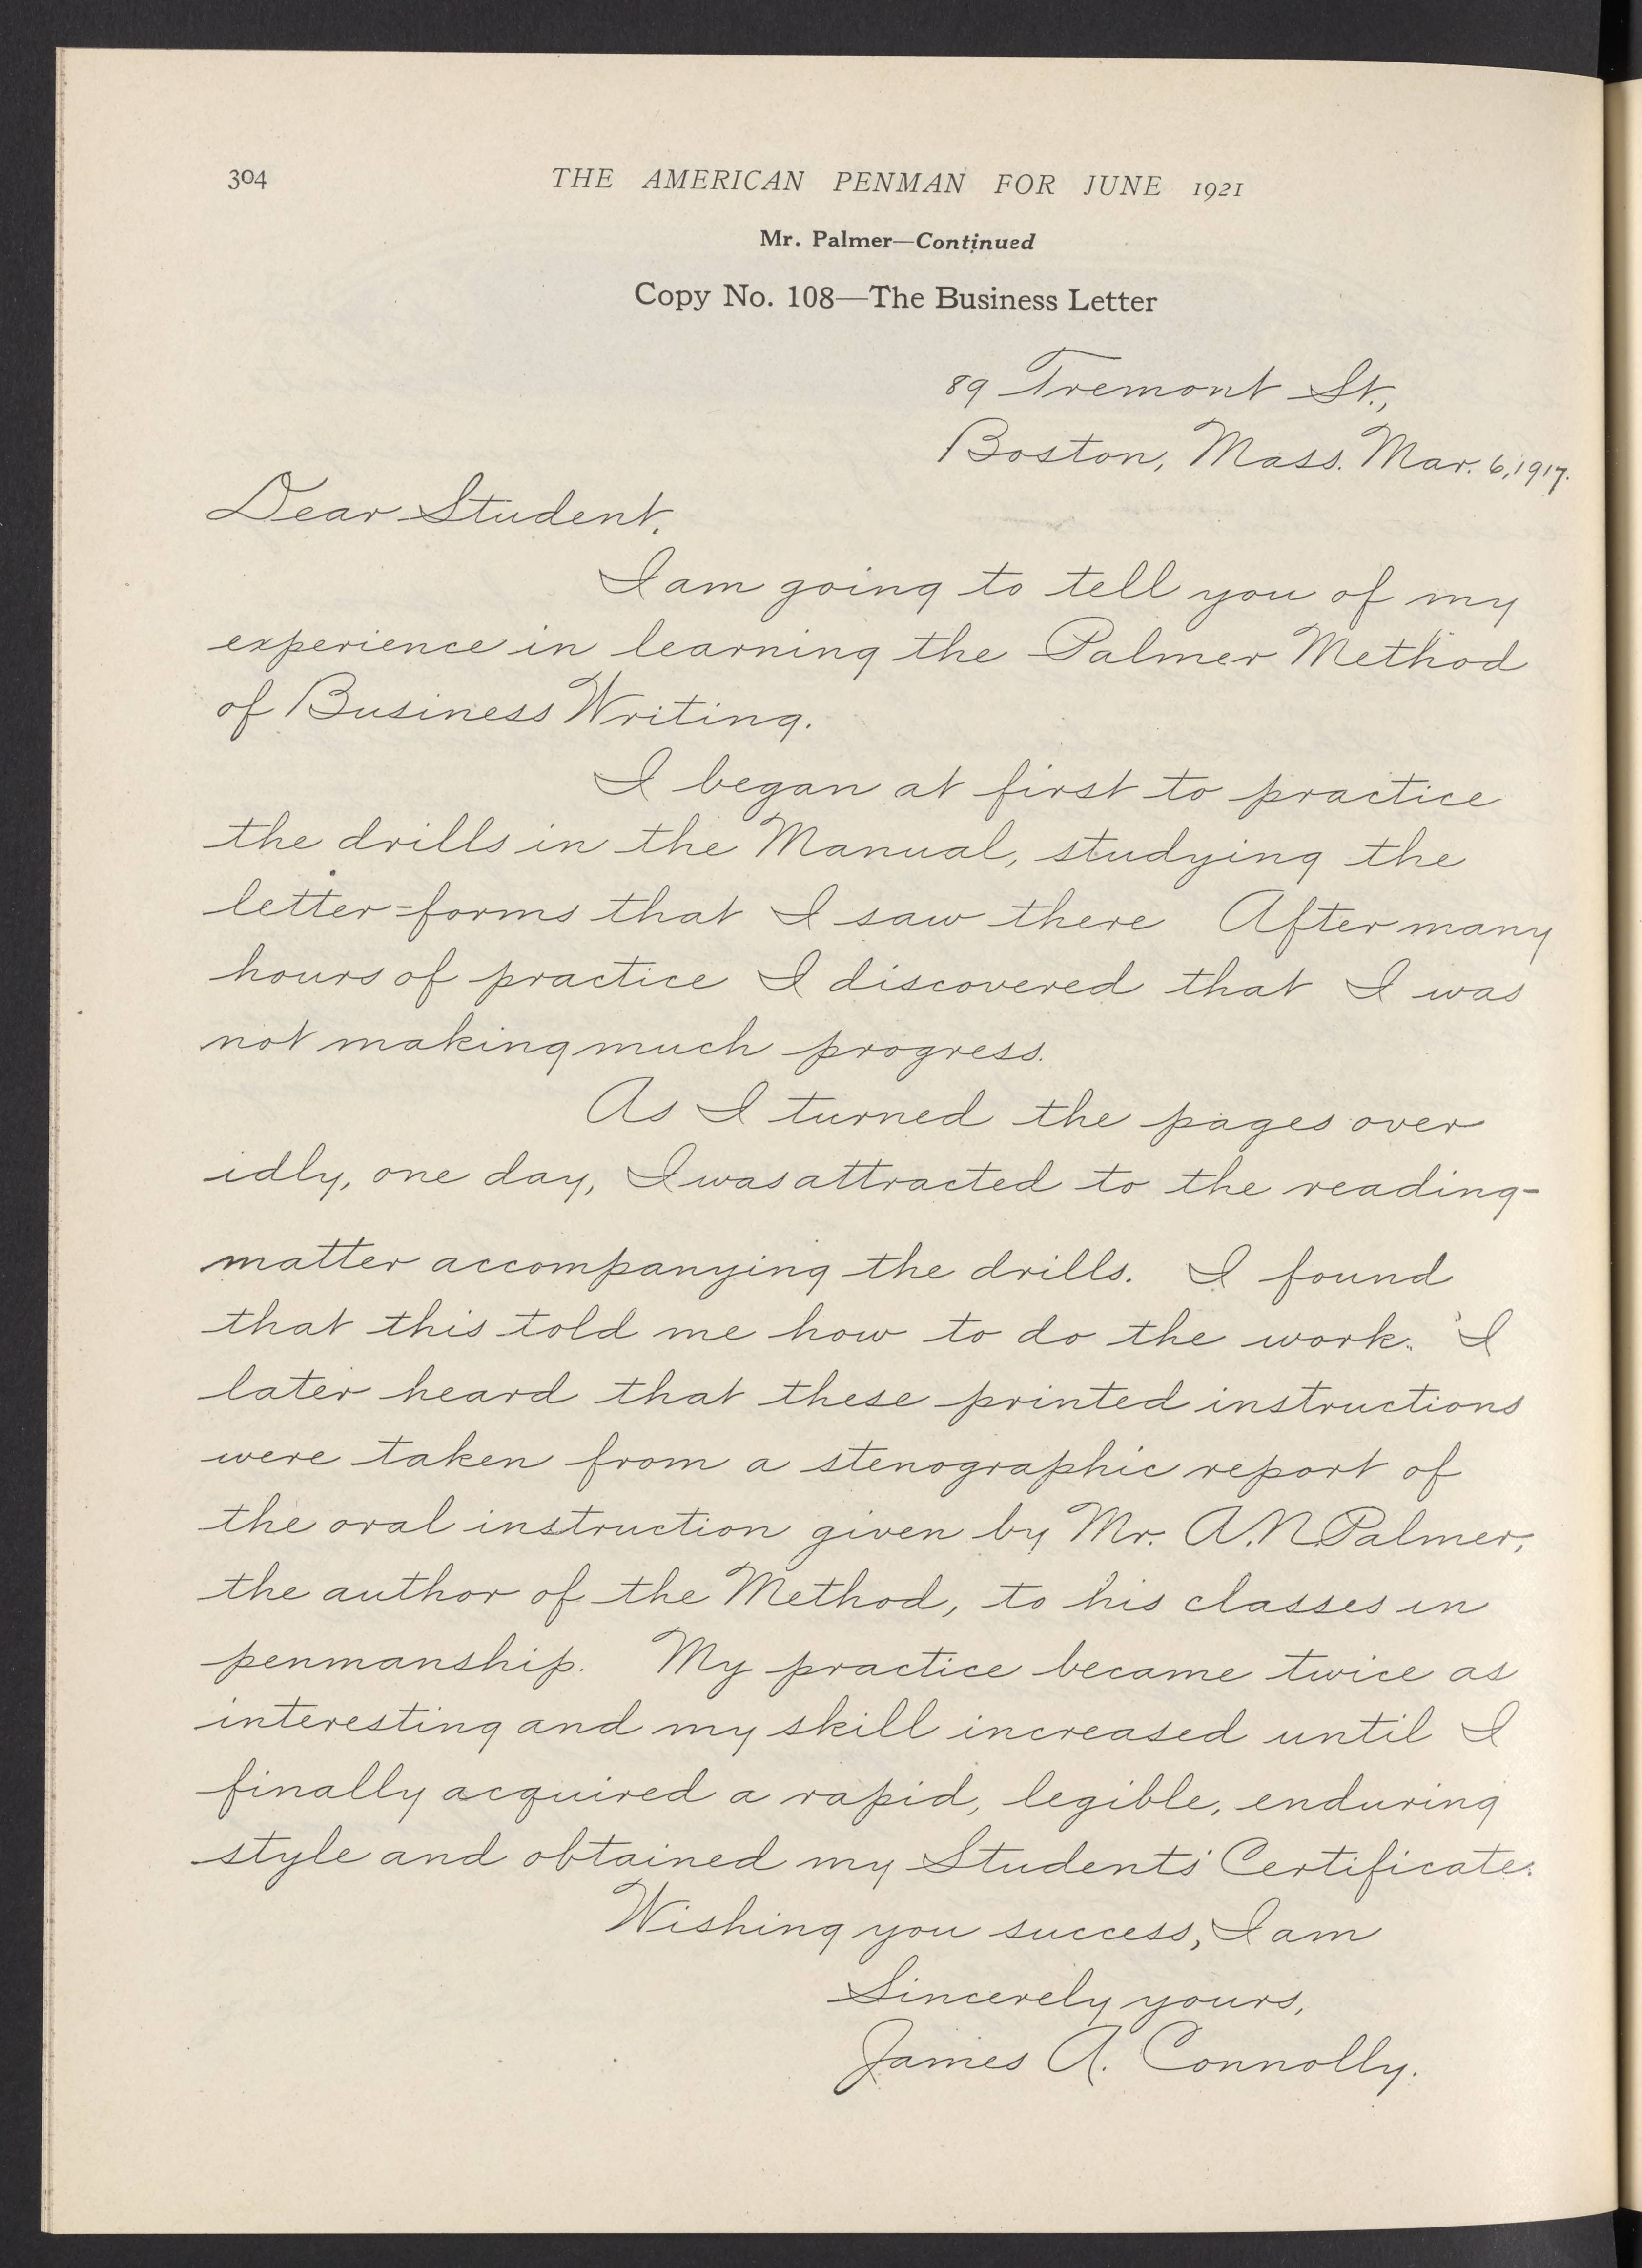 304 THE AMERICAN PENMAN FOR JUNE 1921
Mr. Palmer—Continued
Copy No. 108—The Business Letter
89 Tremont St.,
Boston, Mass. Mar. 6, 1917.
Dear Student,
I am going to tell you of my
experience in learning the Palmer Method
of Business Writing.
I began at first to practice
the drills in the Manual, studying the
letter=forms that I saw there After many
hours of practice I discovered that I was
not making much progress.
As I turned the pages over
idly, one day, I was attracted to the reading-
matter accompanying the drills. I found
that this told me how to do the work. I
later heard that these printed instructions
were taken from a stenographic report of
the oral instruction given by Mr. A. N. Palmer,
the author of the Method, to his classes in
penmanship. My practice became twice as
interesting and my skill increased until I
finally acquired a rapid, legible, enduring
style and obtained my Students' Certificate.
Wishing you success, I am
Sincerely yours,
James A. Connolly.